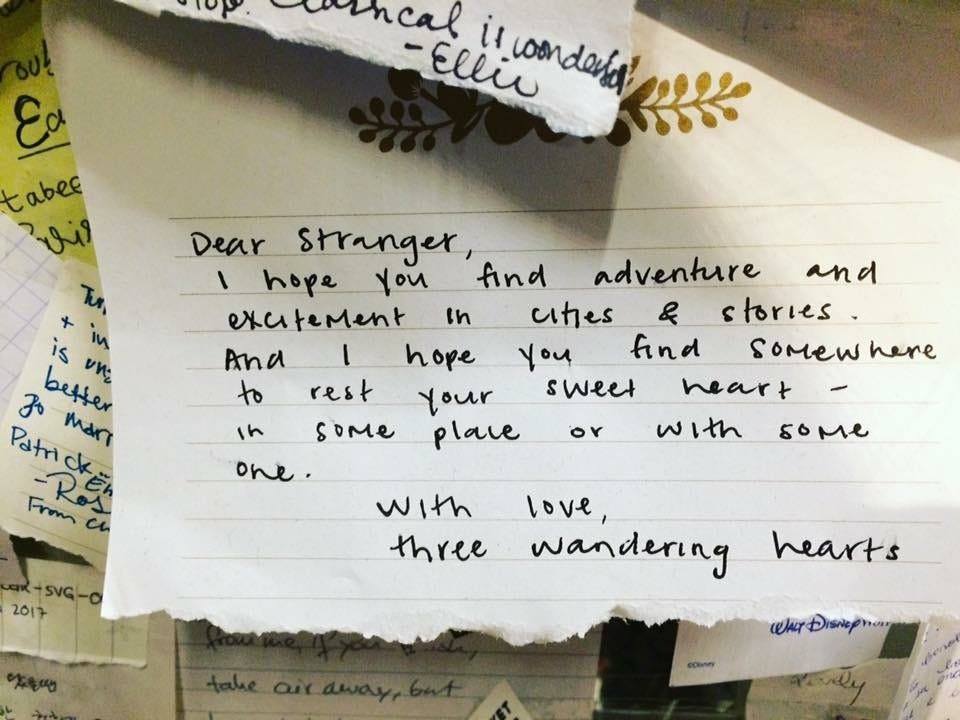 Classical is wonderful
- Ellie
Dear Stranger,
I hope you find adventure and
excitement in cities & stories.
And I hope you find somewhere
to rest your sweet heart –
in some place or with some
one.
With love,
three wandering hearts
is
better
go
Patrick
- Ros
From
2017
from me, if you
take air away, but
WALT DISNEY
©Disney